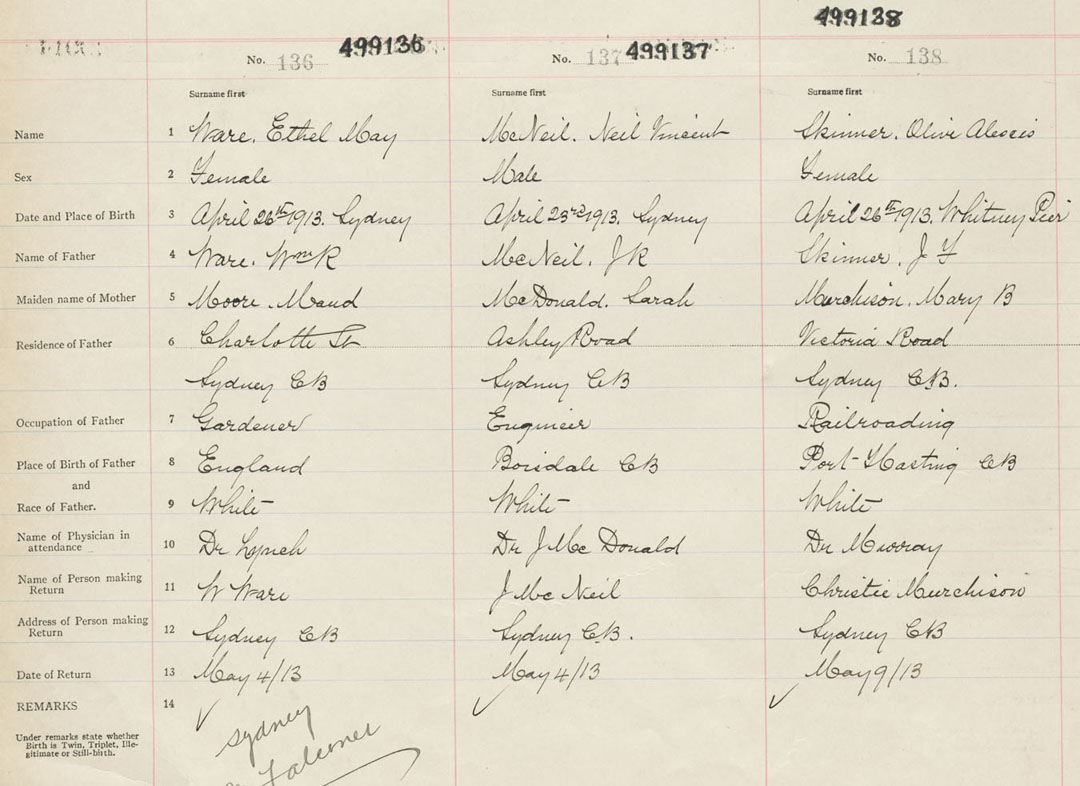 499138
499136
499137
No. 136
No. 137
No. 138
Surname first
Surname first
Surname first
Name 1 Ware. Ethel May McNeil. Neil Vincent Skinner. Olive Alexis
Sex 2 Female Male Female
Date and Place of Birth 3 April 26th 1913. Sydney April 23rd 1913. Sydney April 26th 1913. Whitney Pier
Name of Father 4 Ware. Wm R McNeil. J R Skinner. J
Maiden name of Mother 5 Moore. Maud McDonald. Sarah Murchison. Mary B
Residence of Father 6 Charlotte St Ashley Road Victoria Road
Sydney CB Sydney CB Sydney CB.
Occupation of Father 7 Gardener Engineer Railroading
Place of Birth of Father 8 England Boisdale CB Port Hasting CB
and
Race of Father. 9 White White White
Name of Physician in
attendance 10 Dr Lynch Dr J McDonald Dr Murray
Name of Person making
Return 11 W Ware J McNeil Christie Murchison
Address of Person making
Return 12 Sydney CB Sydney CB. Sydney CB
Date of Return 13 May 4/13 May 4/13 May 9/13
REMARKS 14
Under remarks state whether
Birth is Twin, Triplet, Ille-
gitimate or Still-birth.
Sydney
Falconer